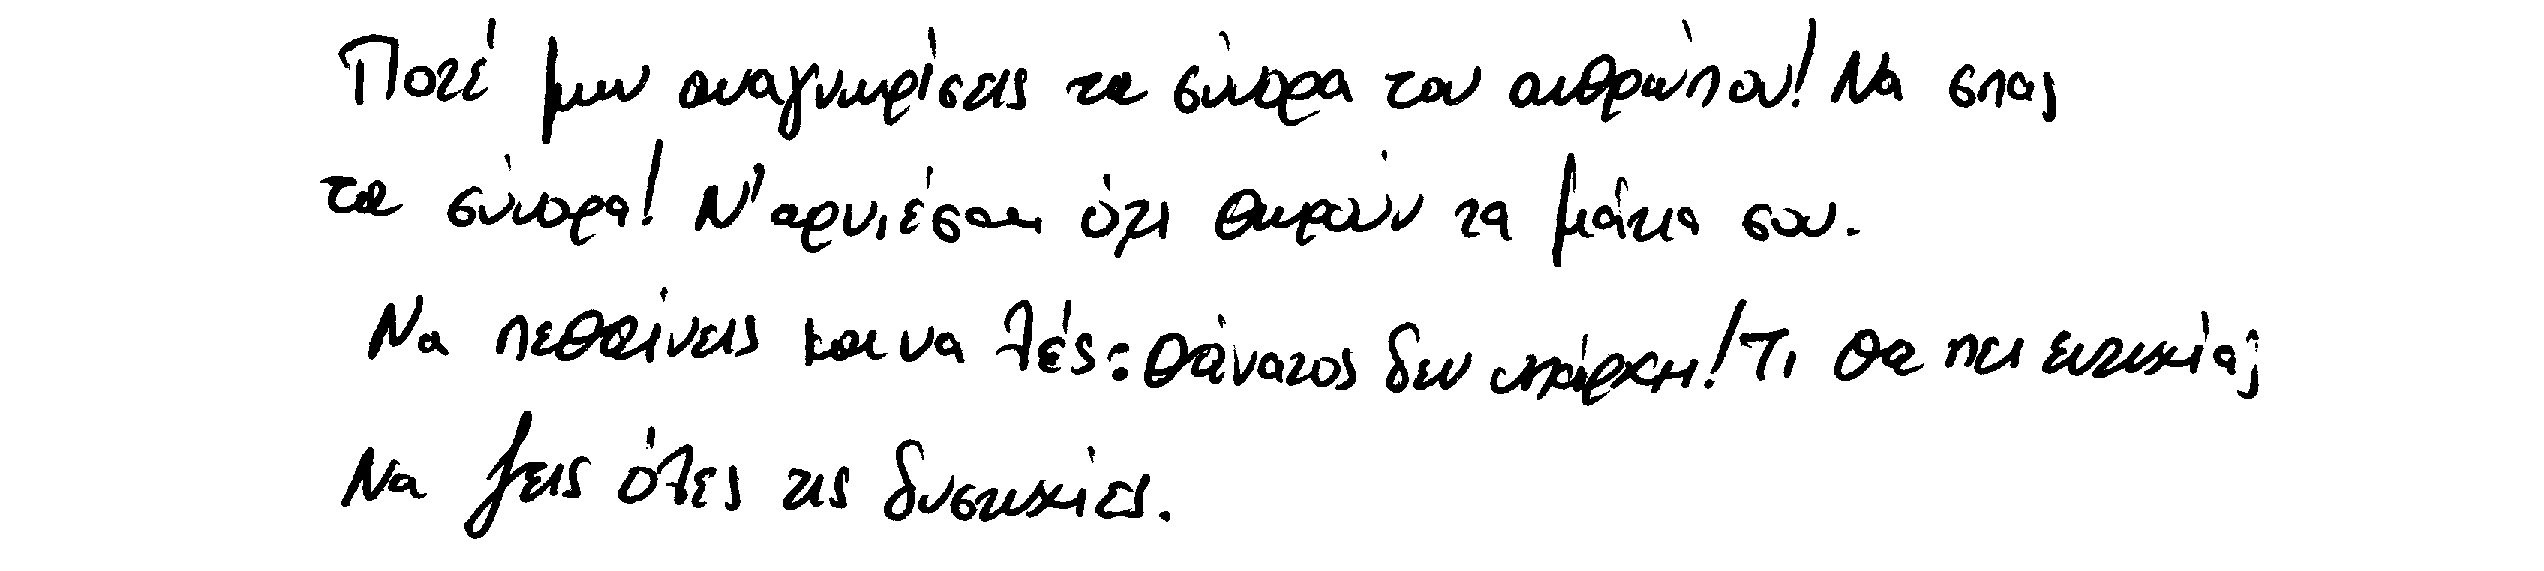 Ποτέ μην αναγνωρίσεις τα σύνορα του ανθρώπου! Να σπας
τα σύνορα! Ν' αρνιέσαι ό,τι θωρούν τα μάτια σου.
Να πεθαίνεις και να λές: θάνατος δεν υπάρχει! Τι θα πει ευτυχία;
Να ζεις όλες τις δυστυχίες.